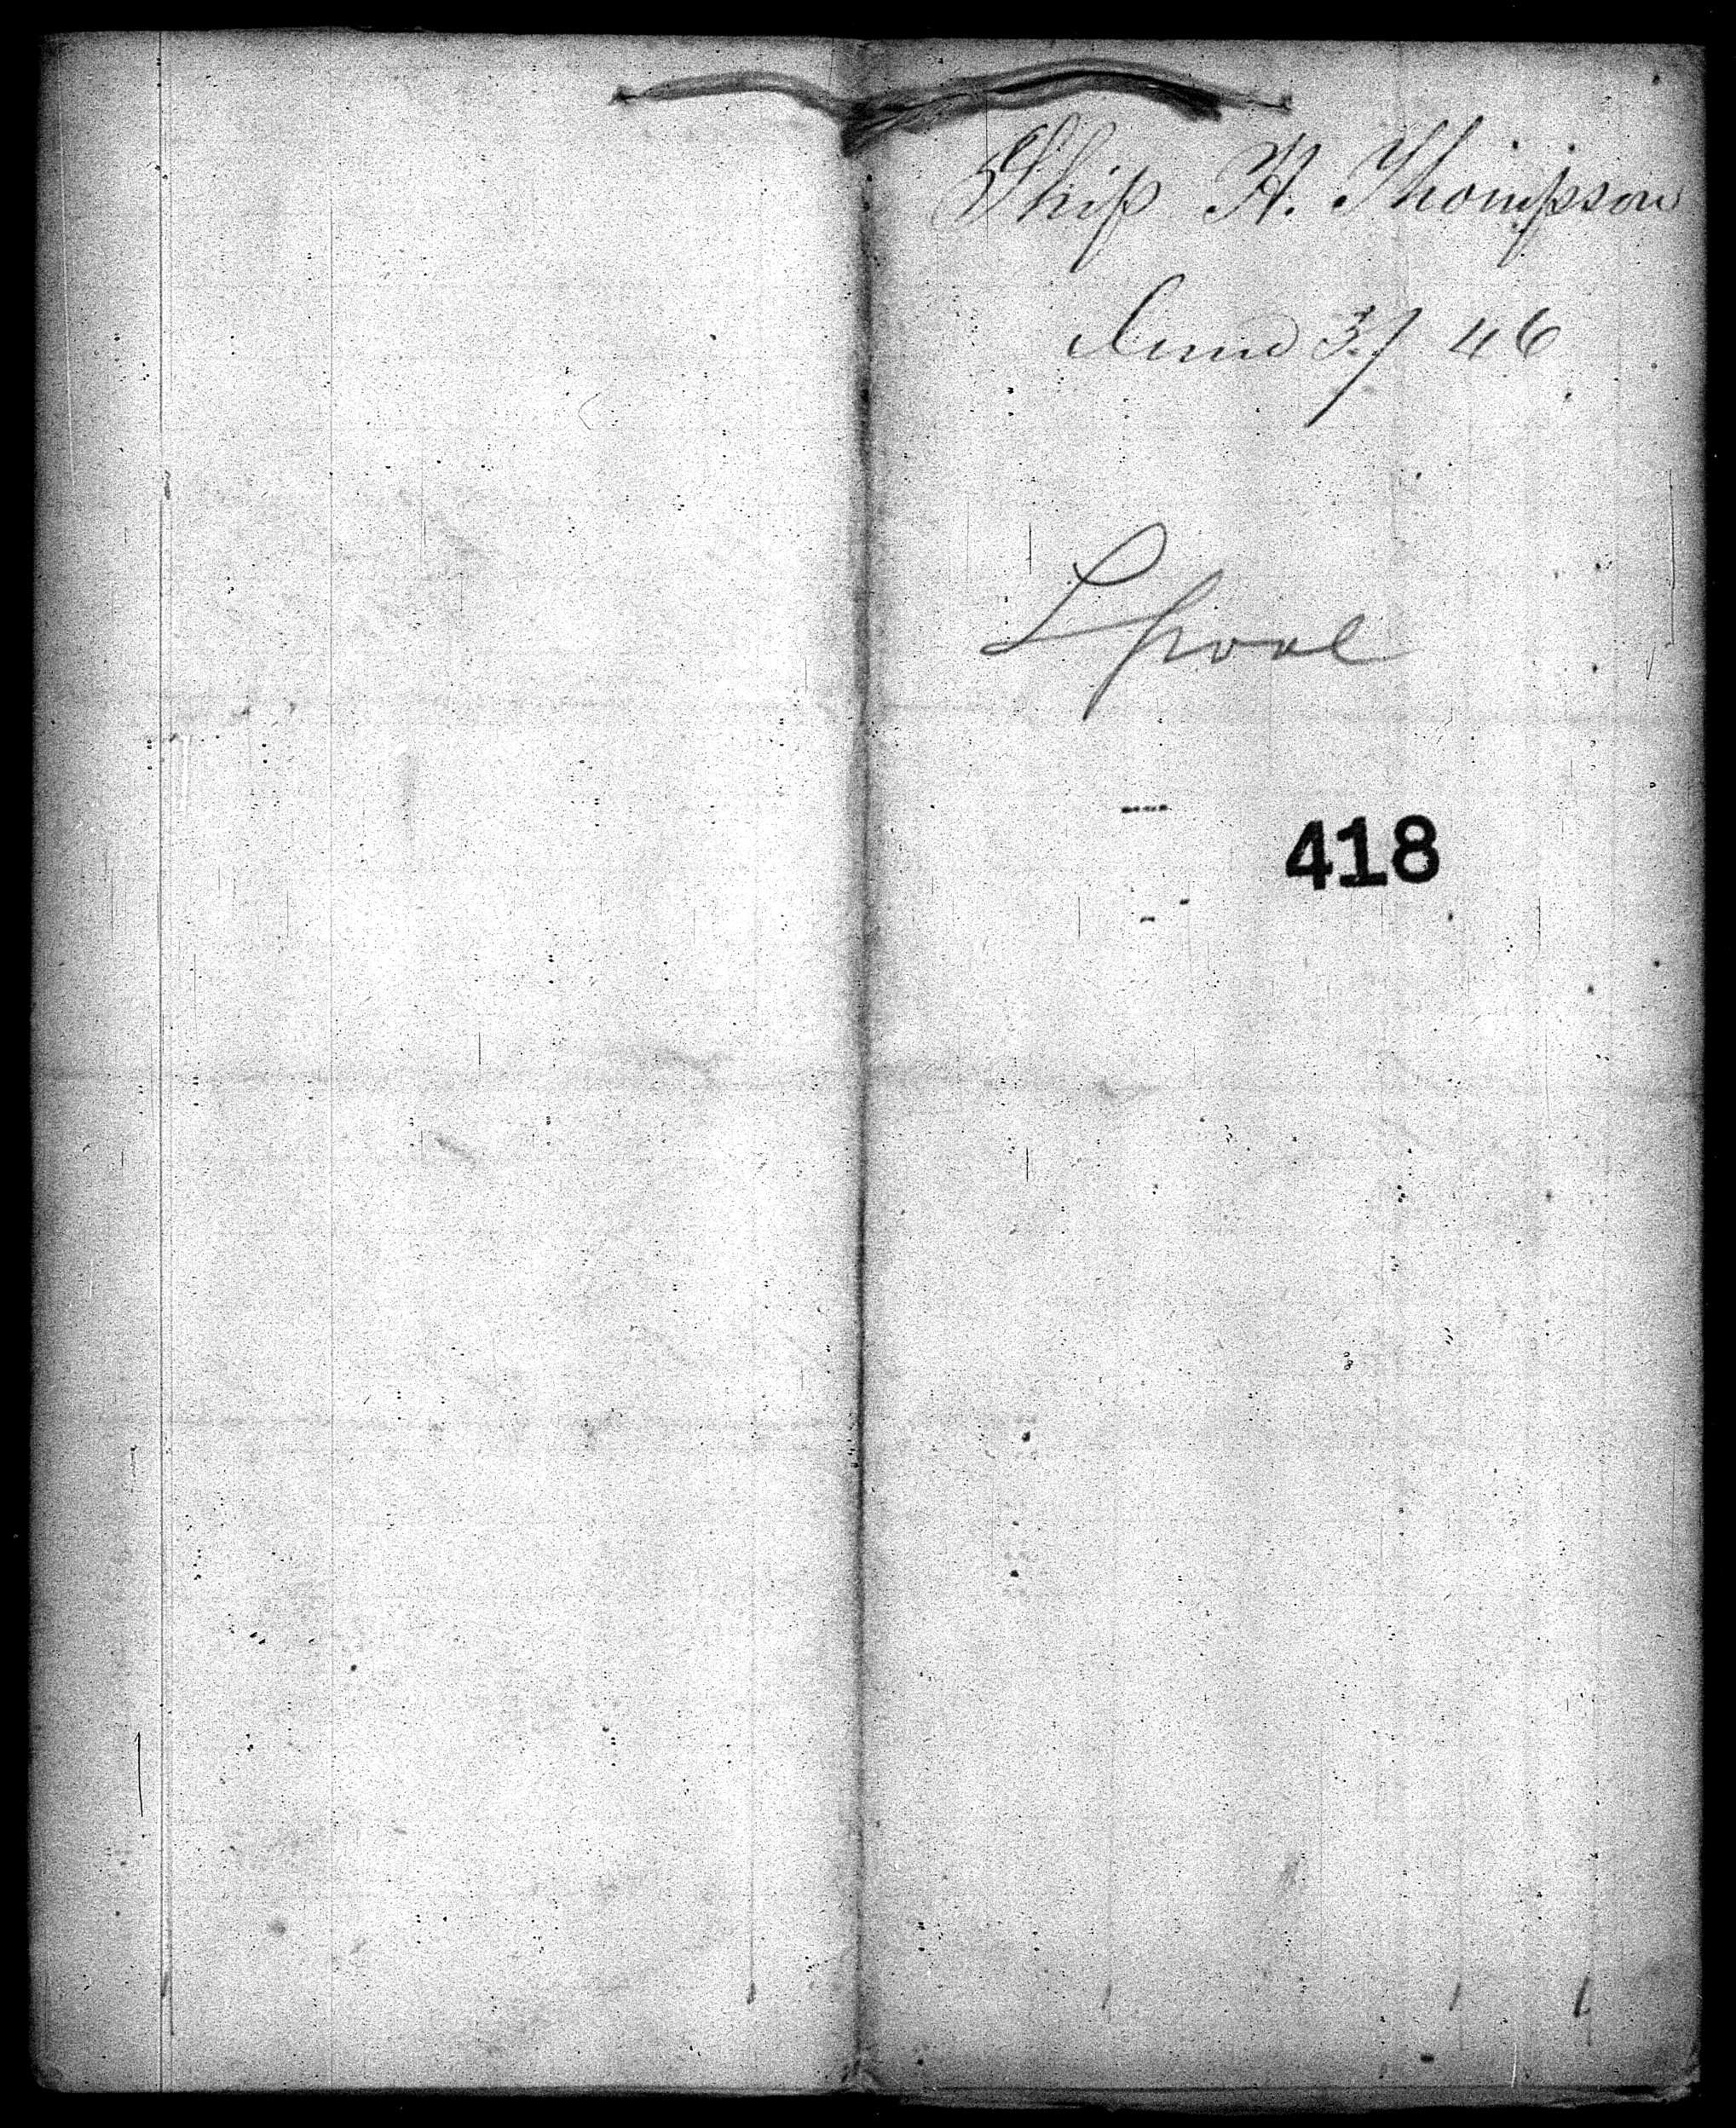 Ship H. Thompson
June 3/ 46
Lpool
418